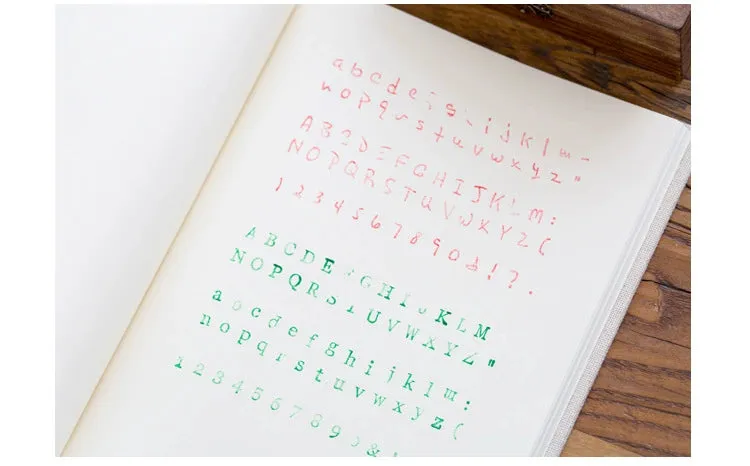 a b c d e f g h i j k l m -
n o p q r s t u v w x y z "
A B C D E F G H I J K L M :
N O P Q R S T U V W X Y Z (
1 2 3 4 5 6 7 8 9 0 & ! ? .
A B C D E F G H I J K L M
N O P Q R S T U V W X Y Z "
a b c d e f g h i j k l m :
n o p q r s t u v w x y z (
1 2 3 4 5 6 7 8 9 0 & !